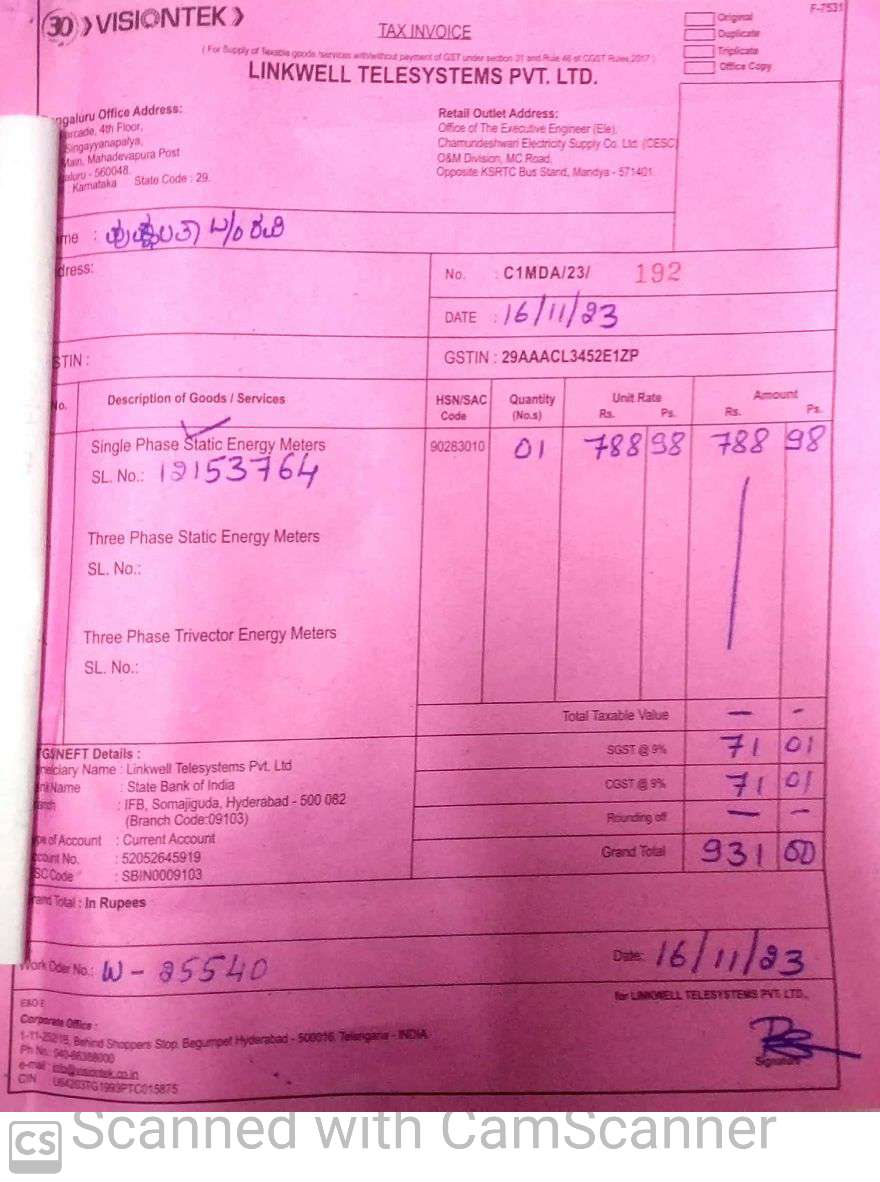 30 VISIONTEK
TAX INVOICE
F-7531
Original
Duplicate
Triplicate
Office Copy
( For Supply of Taxable goods /services with/without payment of GST under section 31 and Rule 46 of CGST Rules 2017 )
LINKWELL TELESYSTEMS PVT. LTD.
ngaluru Office Address:
arcade, 4th Floor,
Singayyanapalya,
Main, Mahadevapura Post
aluru - 560048.
Karnataka State Code : 29.
Retail Outlet Address:
Office of The Executive Engineer (Ele),
Chamundeshwari Electricity Supply Co. Ltd. (CESC)
O&M Division, MC Road,
Opposite KSRTC Bus Stand, Mandya - 571401.
me : ಪುಷ್ಪಲತಾ W/o ರವಿ
dress:
No. : C1MDA/23/ 192
DATE : 16/11/23
STIN :
GSTIN : 29AAACL3452E1ZP
No. Description of Goods / Services HSN/SAC Code Quantity (No.s) Unit Rate Rs. Ps. Amount Rs. Ps.
Single Phase Static Energy Meters 90283010 01 788 98 788 98
SL. No.: 19153764
Three Phase Static Energy Meters
SL. No.:
Three Phase Trivector Energy Meters
SL. No.:
Total Taxable Value — -
SGST @ 9% 71 01
CGST @ 9% 71 01
Rounding off — -
Grand Total 931 00
GS/NEFT Details :
neficiary Name : Linkwell Telesystems Pvt. Ltd
nk Name : State Bank of India
anch : IFB, Somajiguda, Hyderabad - 500 082
(Branch Code:09103)
pe of Account : Current Account
count No. : 52052645919
SC Code : SBIN0009103
rand Total : In Rupees
Work Oder No.: W - 25540
Date: 16/11/23
for LINKWELL TELESYSTEMS PVT. LTD.,
E&O E
Corporate Office :
1-11-252/1B, Behind Shoppers Stop, Begumpet Hyderabad - 500016, Telangana - INDIA
Ph No.: 040-66388000
e-mail : info@visiontek.co.in
CIN : U64203TG1993PTC015875
Signature
CS Scanned with CamScanner